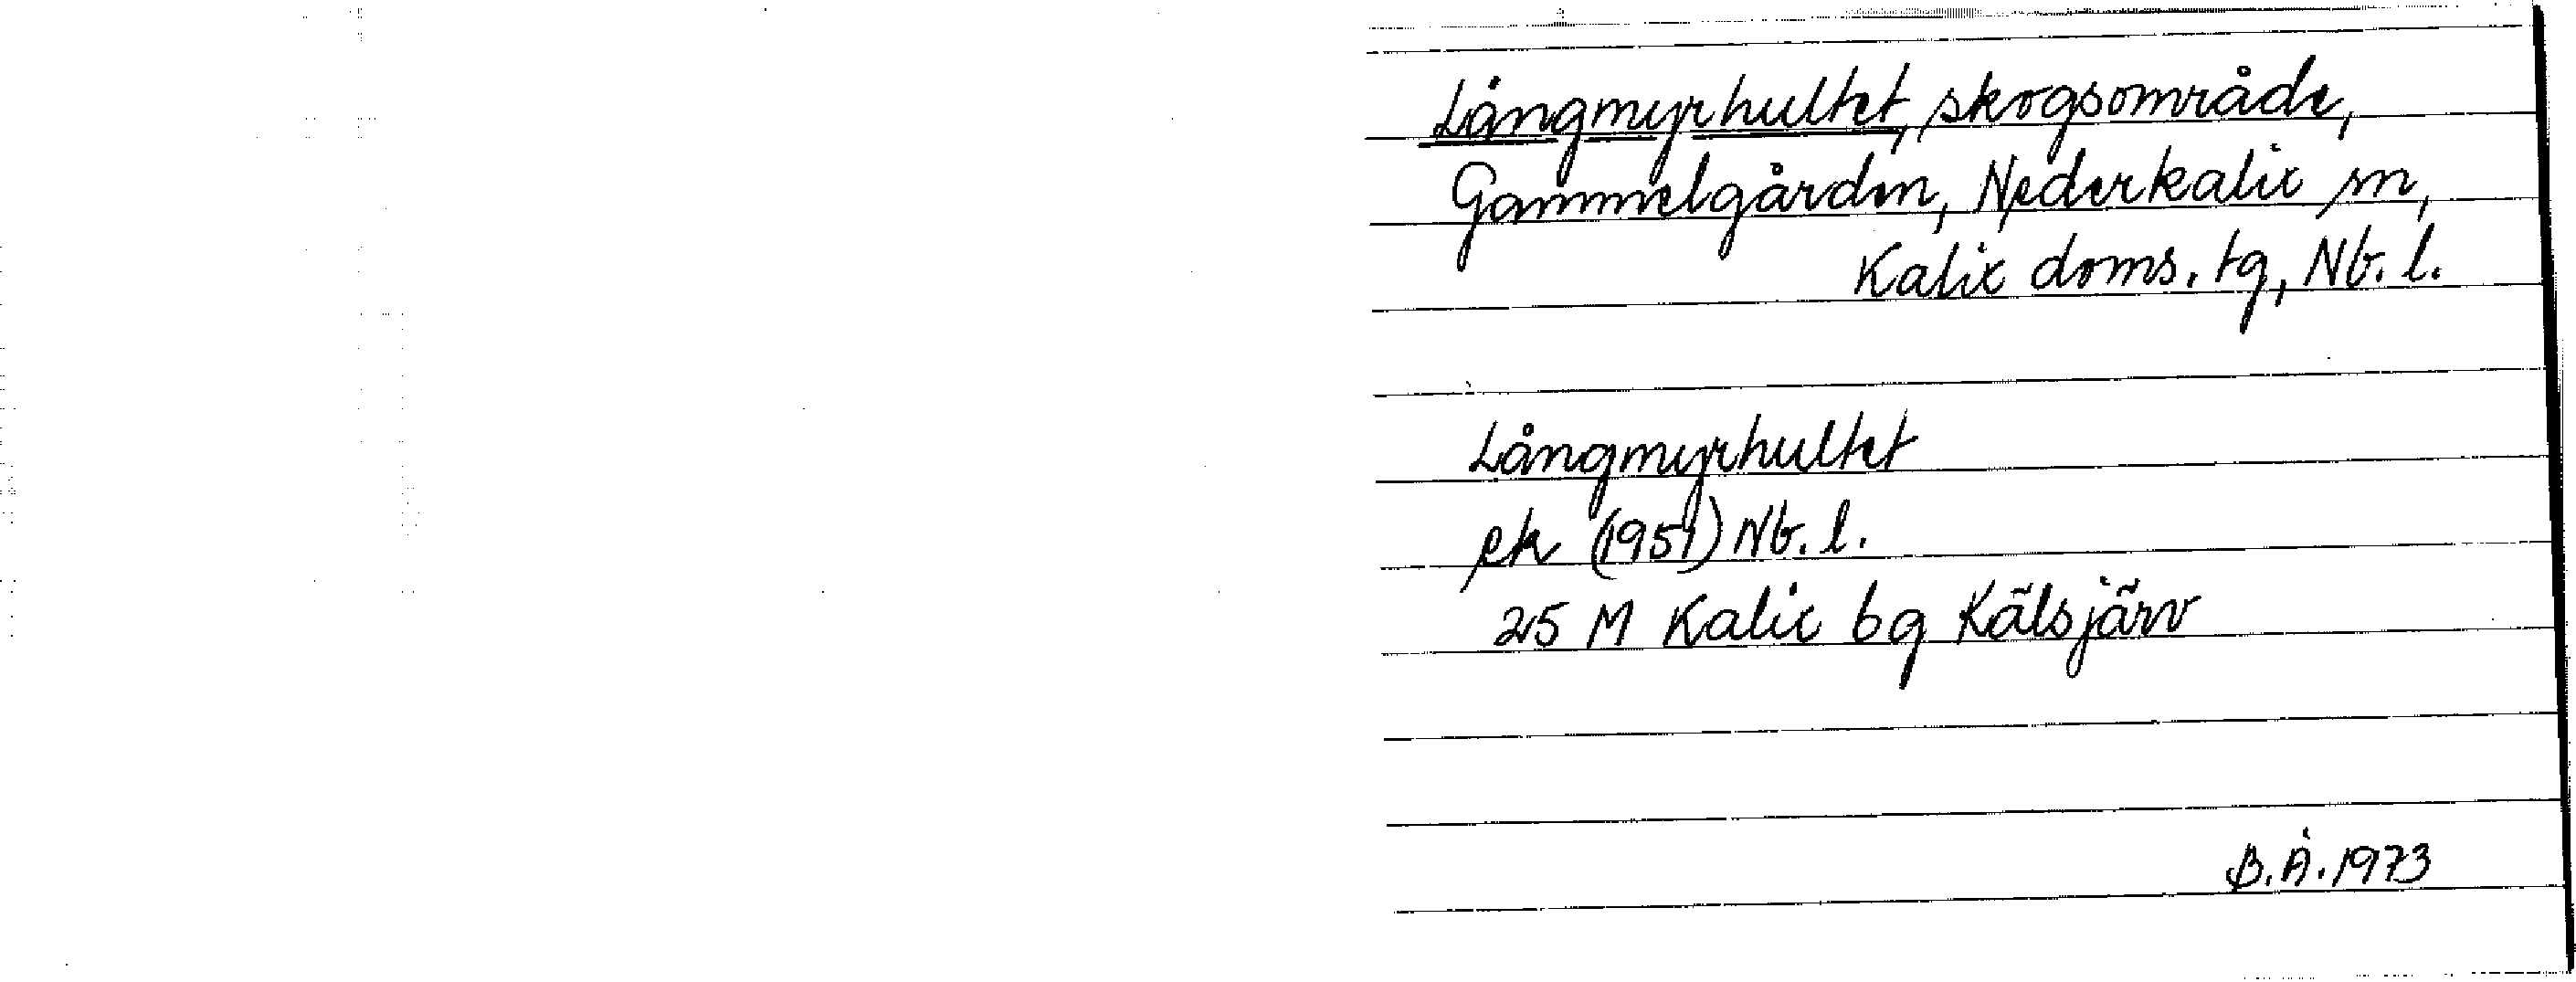 Långmyrhultet, skogsområde,
Gammelgården, Nederkalix sn,
Kalix doms. tg, Nb. l.
Långmyrhultet
ek (1951) Nb. l.
25 M Kalix bg Kälsjärv
B.Å. 1973